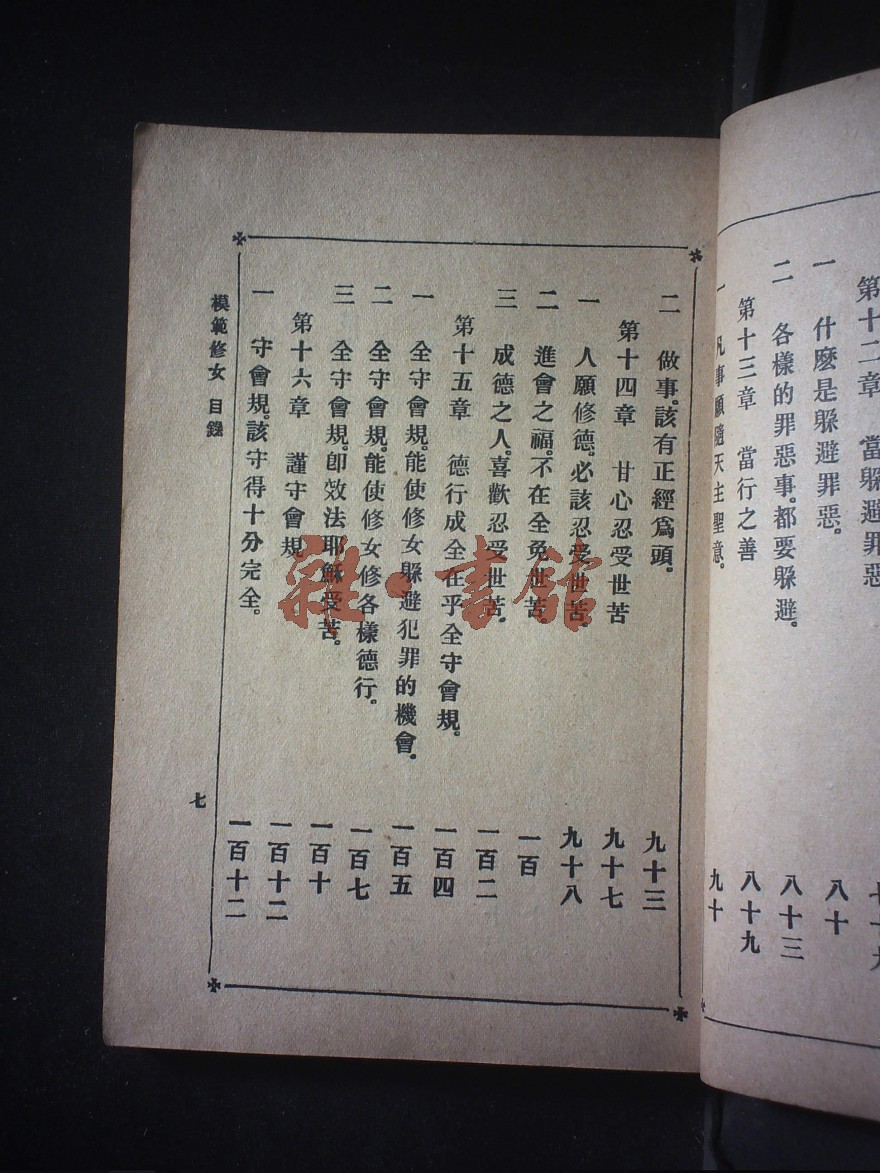 第十二章 當躲避罪惡
一 什麽是躲避罪惡。 八十
二 各樣的罪惡事。都要躲避。 八十三
第十三章 當行之善 八十九
一 凡事願隨天主聖意。 九十
二 做事。該有正經爲頭。 九十三
第十四章 甘心忍受世苦 九十七
一 人願修德。必該忍受世苦。 九十八
二 進會之福。不在全免世苦。 一百
三 成德之人。喜歡忍受世苦。 一百二
第十五章 德行成全在乎全守會規。 一百四
一 全守會規。能使修女躲避犯罪的機會。 一百五
二 全守會規。能使修女修各樣德行。 一百七
三 全守會規。卽效法耶穌受苦。 一百十
第十六章 謹守會規 一百十二
一 守會規。該守得十分完全。 一百十二
模範修女 目錄 七
雜·書館